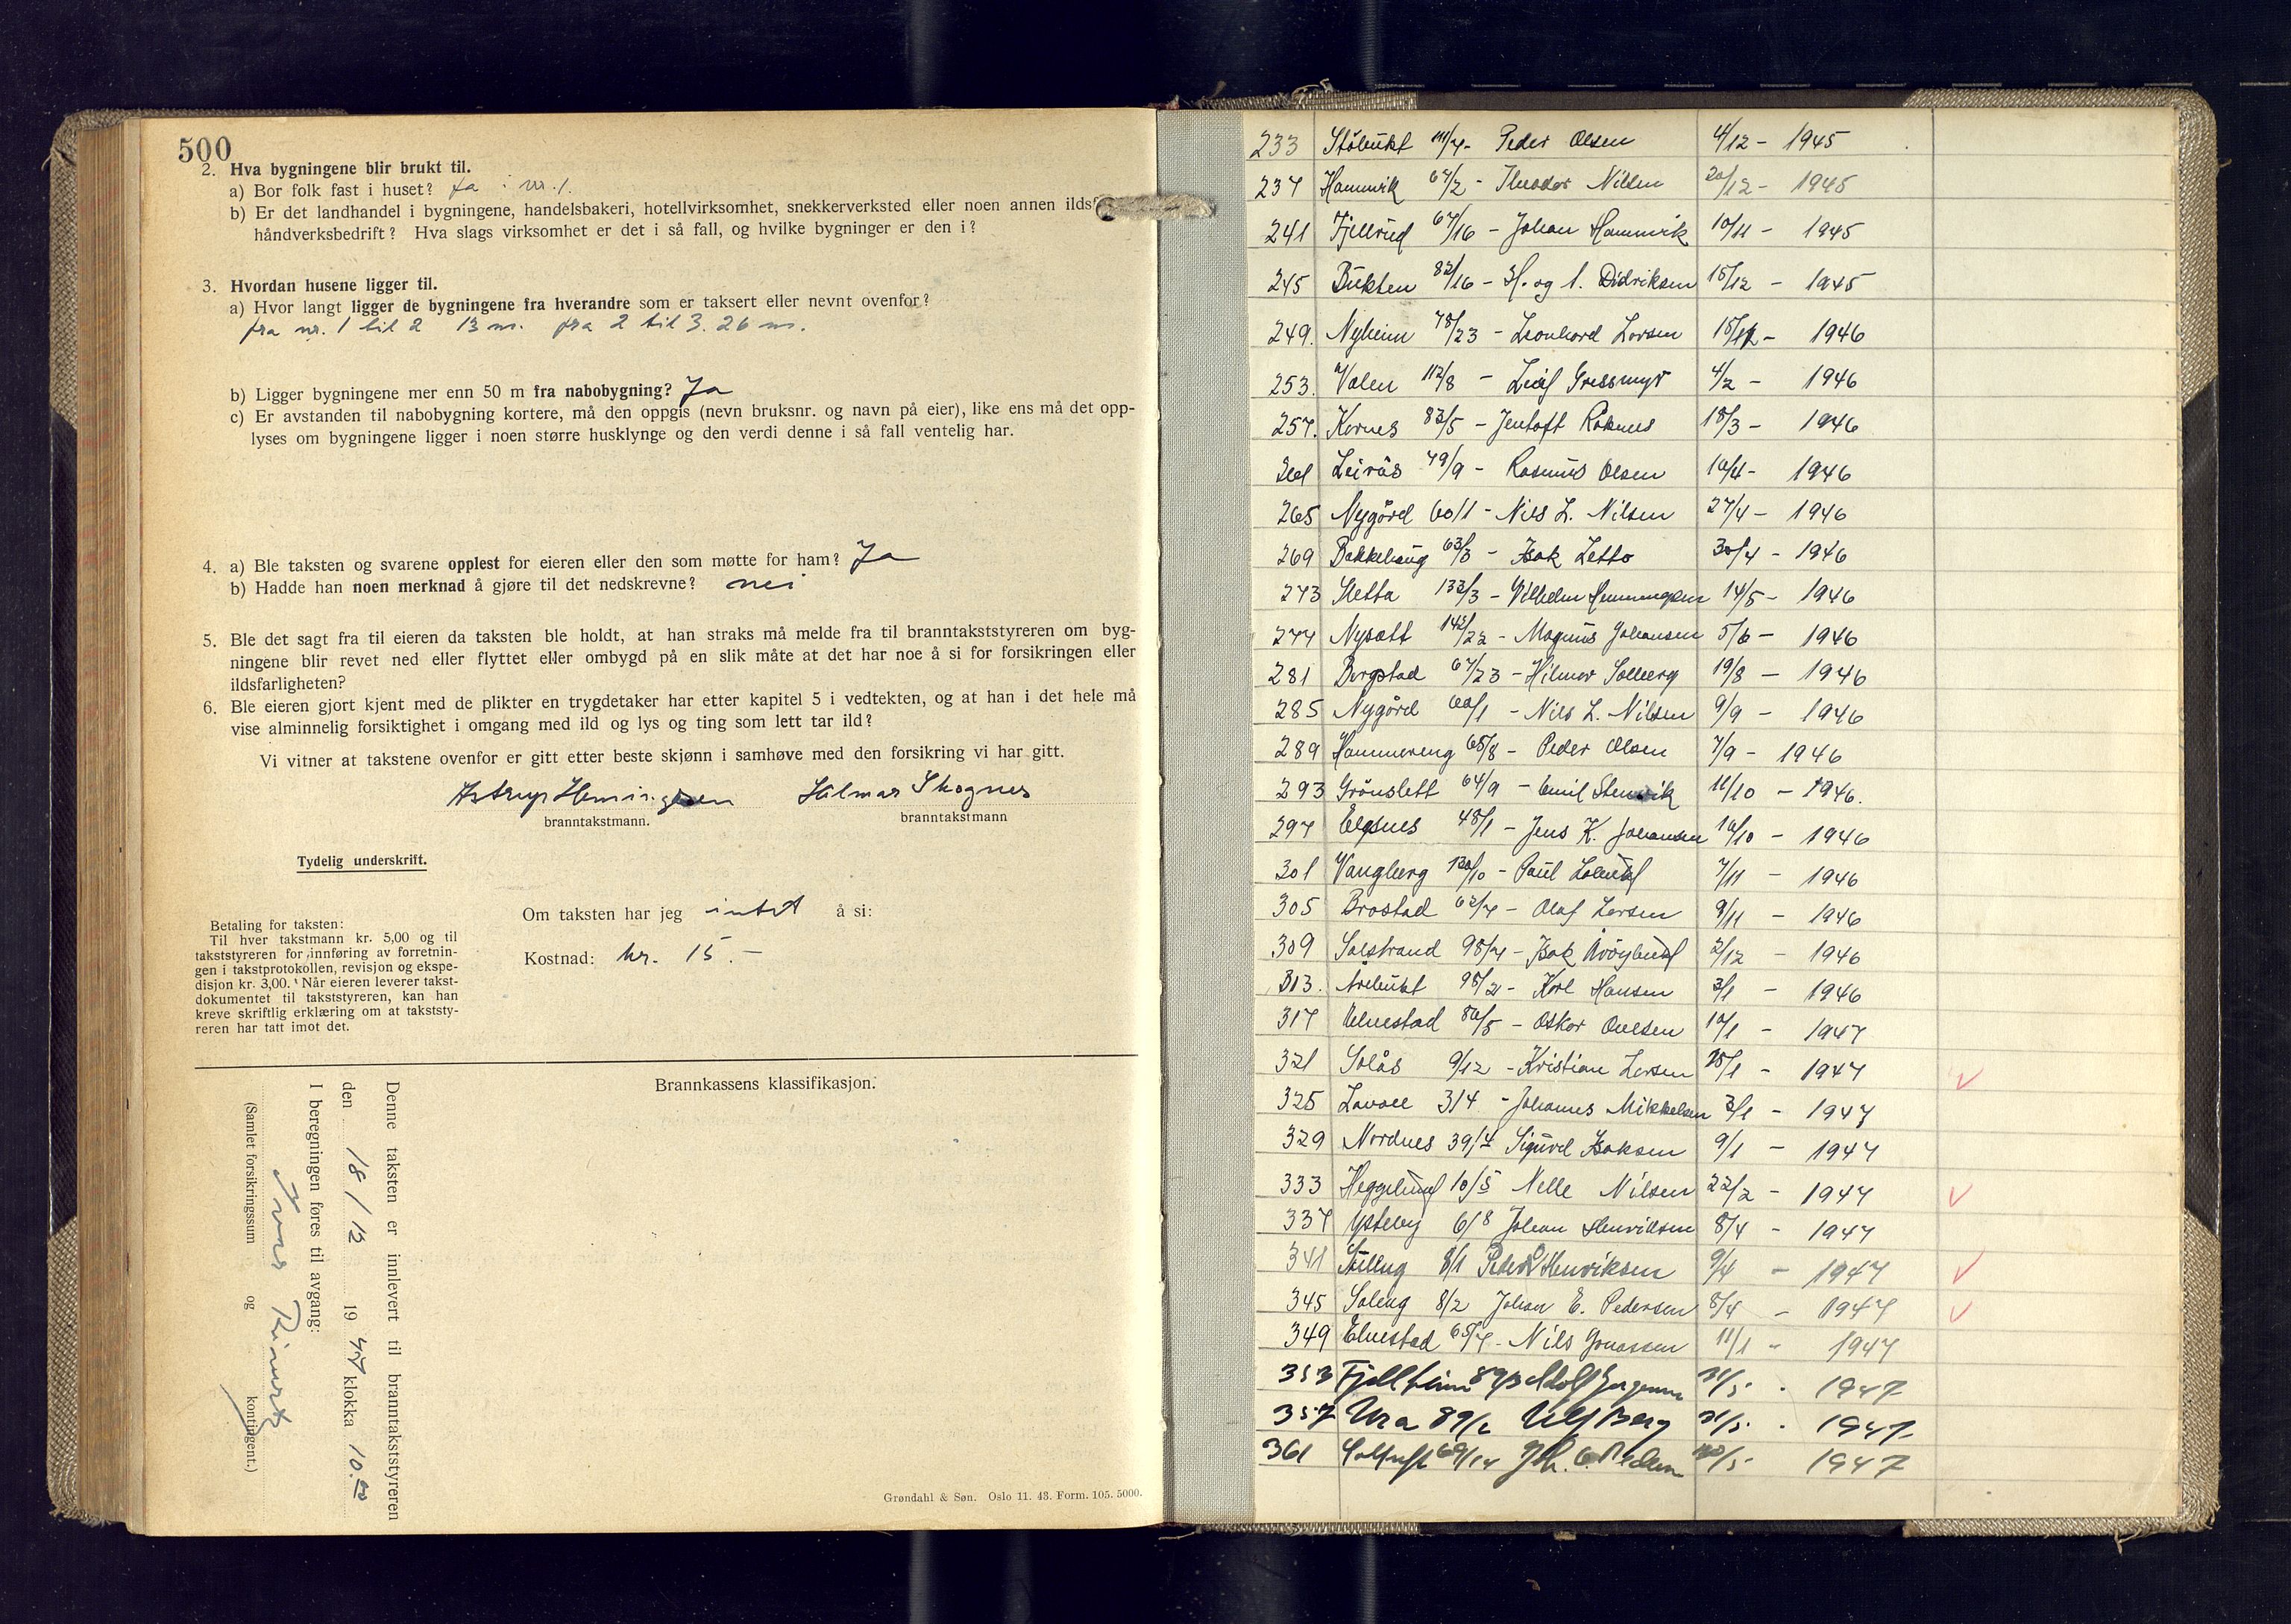 500
2. Hva bygningene blir brukt til.
a) Bor folk fast i huset? Ja i nr. 1.
b) Er det landhandel i bygningene, handelsbakeri, hotellvirksomhet, snekkerverksted eller noen annen ildsf
håndverksbedrift? Hva slags virksomhet er det i så fall, og hvilke bygninger er den i?
3. Hvordan husene ligger til.
a) Hvor langt ligger de bygningene fra hverandre som er taksert eller nevnt ovenfor?
fra nr. 1 til 2 13 m. fra 2 til 3. 26 m.
b) Ligger bygningene mer enn 50 m fra nabobygning? Ja
c) Er avstanden til nabobygning kortere, må den oppgis (nevn bruksnr. og navn på eier), like ens må det opp-
lyses om bygningene ligger i noen større husklynge og den verdi denne i så fall ventelig har.
4. a) Ble taksten og svarene opplest for eieren eller den som møtte for ham? Ja
b) Hadde han noen merknad å gjøre til det nedskrevne? nei
5. Ble det sagt fra til eieren da taksten ble holdt, at han straks må melde fra til branntakststyreren om byg-
ningene blir revet ned eller flyttet eller ombygd på en slik måte at det har noe å si for forsikringen eller
ildsfarligheten?
6. Ble eieren gjort kjent med de plikter en trygdetaker har etter kapitel 5 i vedtekten, og at han i det hele må
vise alminnelig forsiktighet i omgang med ild og lys og ting som lett tar ild?
Vi vitner at takstene ovenfor er gitt etter beste skjønn i samhøve med den forsikring vi har gitt.
Astrup Hemingsen Hilmar Skognes
branntakstmann. branntakstmann
Tydelig underskrift.
Betaling for taksten:
Til hver takstmann kr. 5,00 og til
takststyreren for innføring av forretnin-
gen i takstprotokollen, revisjon og ekspe-
disjon kr. 3,00. Når eieren leverer takst-
dokumentet til takststyreren, kan han
kreve skriftlig erklæring om at takststy-
reren har tatt imot det.
Om taksten har jeg intet å si:
Kostnad: kr. 15.-
Brannkassens klassifikasjon.
Denne taksten er innlevert til branntakststyreren
den 18/12 1947 klokka 10.00
I beregningen føres til avgang:
(Samlet forsikringssum og kontingent.)
Grøndahl & Søn. Oslo 11. 43. Form. 105. 5000.
233 Stobukt 111/7- Peder Olsen 4/12 - 1945
237 Hamnvik 67/2 - Theodor Nilsen 20/12 - 1945
241 Fjellrud 67/16 - Johan Hamnvik 10/11 - 1945
245 Bukten 82/16 - H. og A. Didriksen 15/12 - 1945
249. Nyheim 78/23 - Leonhard Larsen 15/12 - 1946
253. Valen 112/8 - Leif Gressmyr 4/2 - 1946
257. Kornes 83/5 - Jentoft Roknes 18/3 - 1946
261 Leirås 79/9 - Rasmus Olsen 10/4 - 1946
265 Nygård 60/1 - Nils L. Nilsen 27/4 - 1946
269 Bakkehaug 63/3 - Isak Zetto 30/4 - 1946
273 Sletta 132/3 - Vilhelm Hemmingsen 14/5 - 1946
277 Nysett 142/22 - Magnus Johansen 5/6 - 1946
281 Bergstad 67/23 - Hilmar Solberg 19/8 - 1946
285 Nygård 60/1 - Nils L. Nilsen 9/9 - 1946
289 Hammereng 65/8 - Peder Olsen 7/9 - 1946
293 Grönslett 64/9 - Emil Stenvik 11/10 - 1946.
297 Elgsnes 48/1 - Jens K. Johansen 16/10 - 1946
301 Vangberg 130/10 - Paul Lobukt 7/11 - 1946
305 Brostad 62/7 - Olaf Larsen 9/11 - 1946
309 Solstrand 98/7 - Isak 2/12 - 1946
313. Årbukt 98/21 - Karl Hansen 3/1 - 1946
317 Elvestad 80/5 - Oskar Ovesen 10/1 - 1947
321 Solås 9/12 - Kristian Larsen 25/1 - 1947
325 Lavoll 3/4 - Johannes Mikkelsen 3/1 - 1947
329 Nordnes 39/4 Sigurd Isaksen 9/1 - 1947
333 Heggelund 10/5 Nelle Nilsen 22/2 - 1947
337 Ysteby 6/8 Johan Henriksen 8/4 - 1947
341 8/1 Peder Henriksen 9/4 - 1947
345 Soleng 8/2 Johan E. Pedersen 8/4 - 1947
349 Elvestad 65/7 - Nils Jonassen 11/1 - 1947
353 Fjellheim Adolf Jørgensen 31/5 . 1947
357 Ura 89/2 Ulf Berg 31/5 . 1947
361 69/14 1947